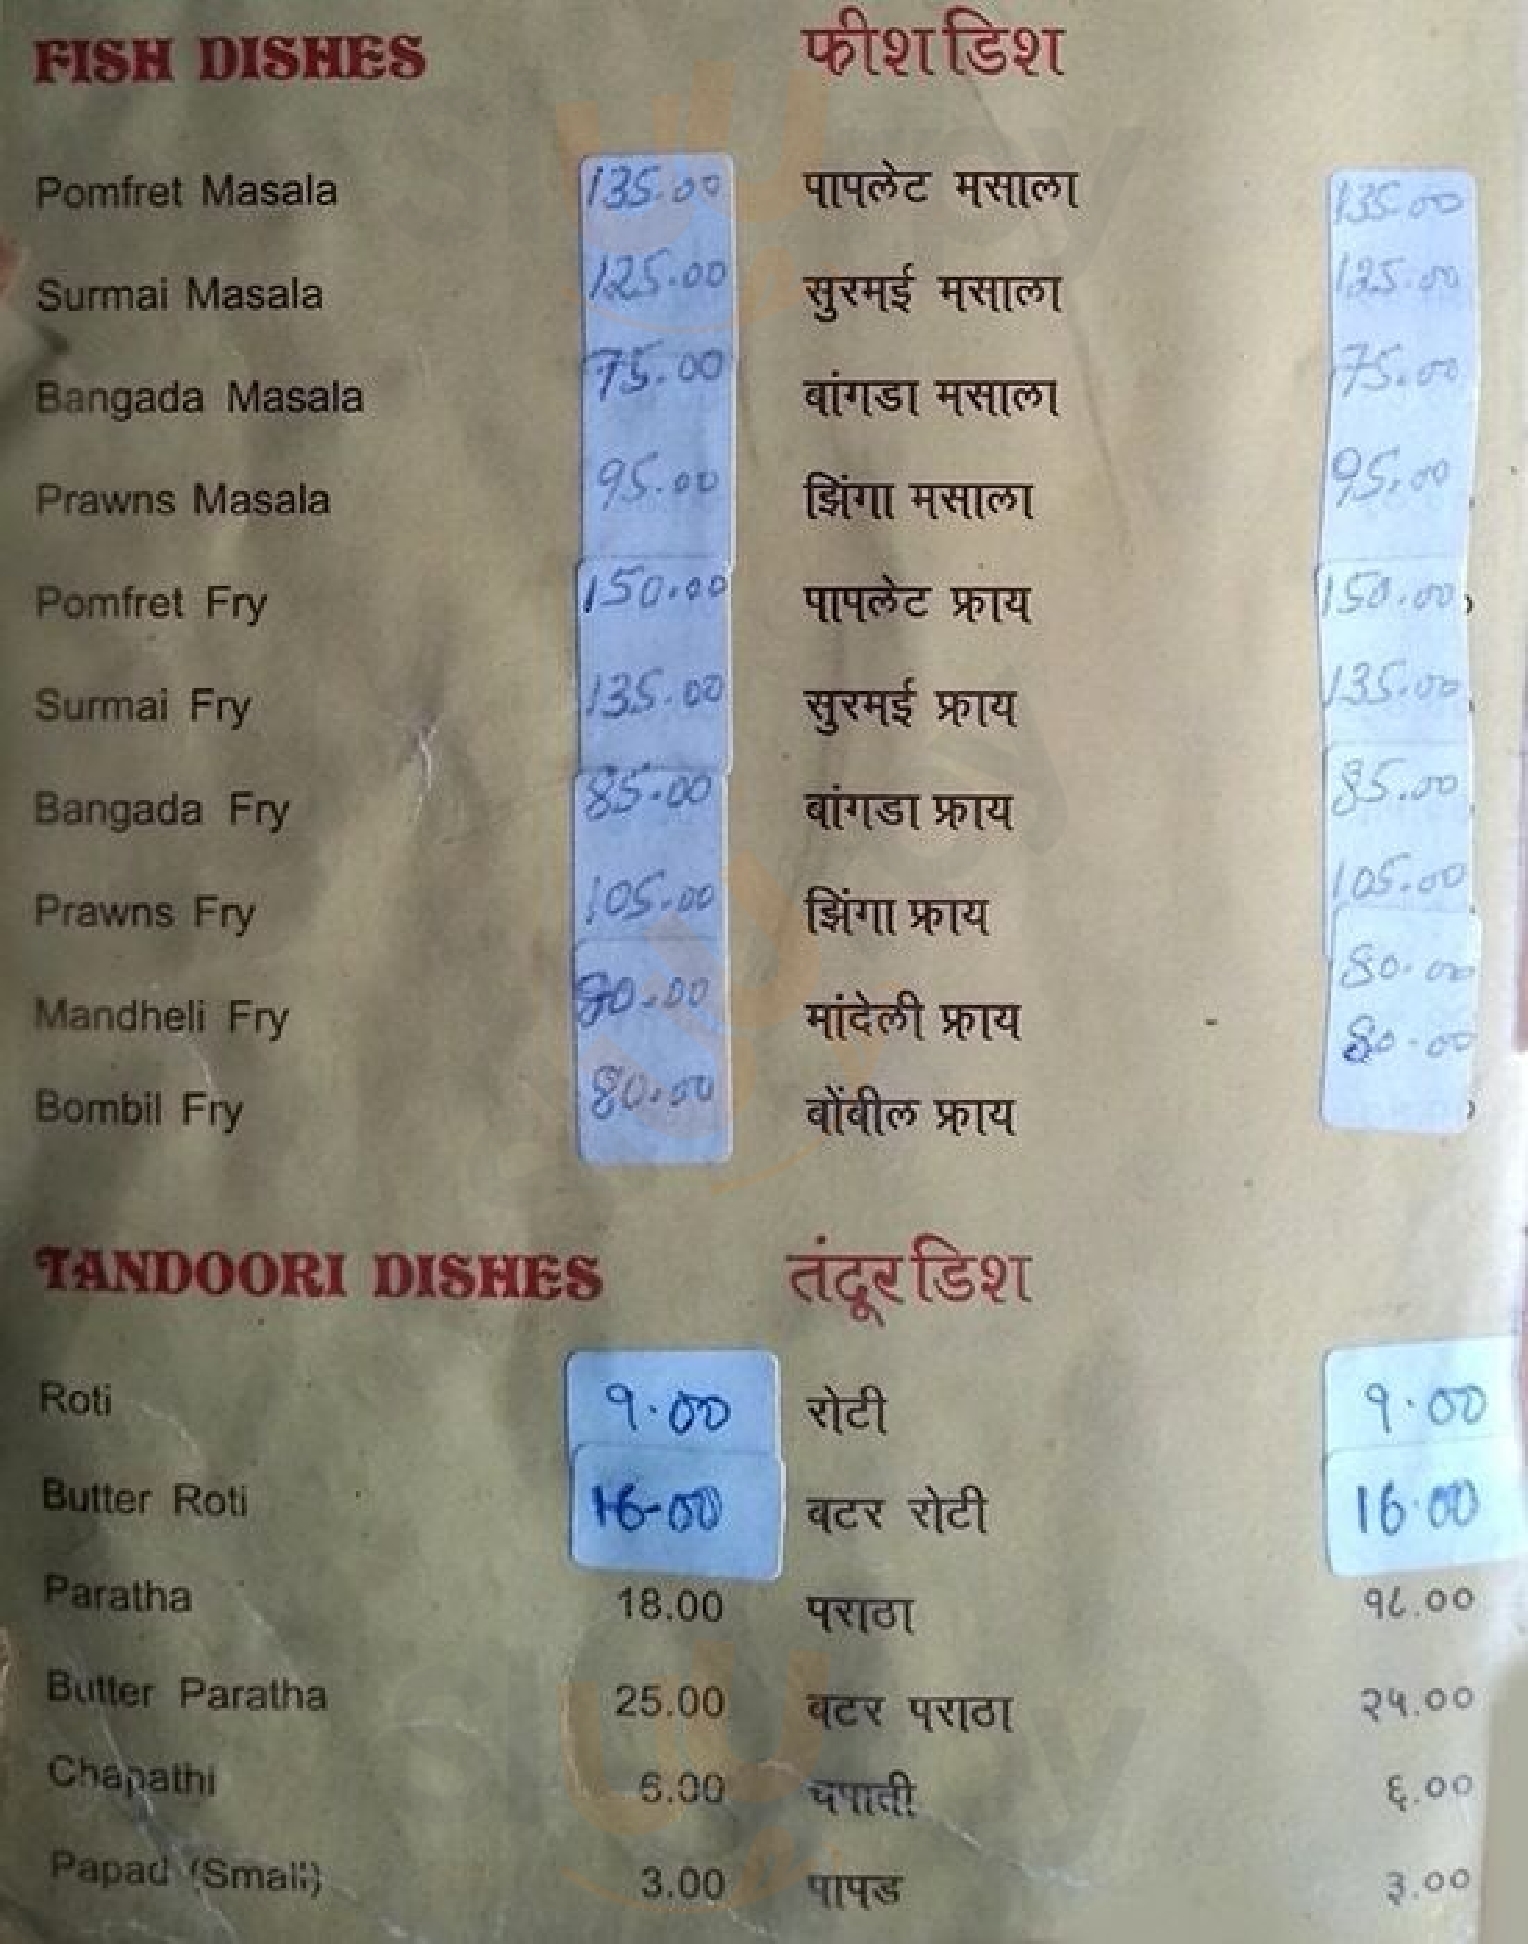 FISH DISHES फीश डिश
Pomfret Masala 135.00 पापलेट मसाला 135.00
Surmai Masala 125.00 सुरमई मसाला 125.00
Bangada Masala 75.00 बांगडा मसाला 75.00
Prawns Masala 95.00 झिंगा मसाला 95.00
Pomfret Fry 150.00 पापलेट फ्राय 150.00
Surmai Fry 135.00 सुरमई फ्राय 135.00
Bangada Fry 85.00 बांगडा फ्राय 85.00
Prawns Fry 105.00 झिंगा फ्राय 105.00
Mandheli Fry 80.00 मांदेली फ्राय 80.00
Bombil Fry 80.00 बोंबील फ्राय 80.00
TANDOORI DISHES तंदूर डिश
Roti 9.00 रोटी 9.00
Butter Roti 16-00 बटर रोटी 16.00
Paratha 18.00 पराठा १८.००
Butter Paratha 25.00 बटर पराठा २५.००
Chapathi 6.00 चपाती ६.००
Papad (Small) 3.00 पापड ३.००